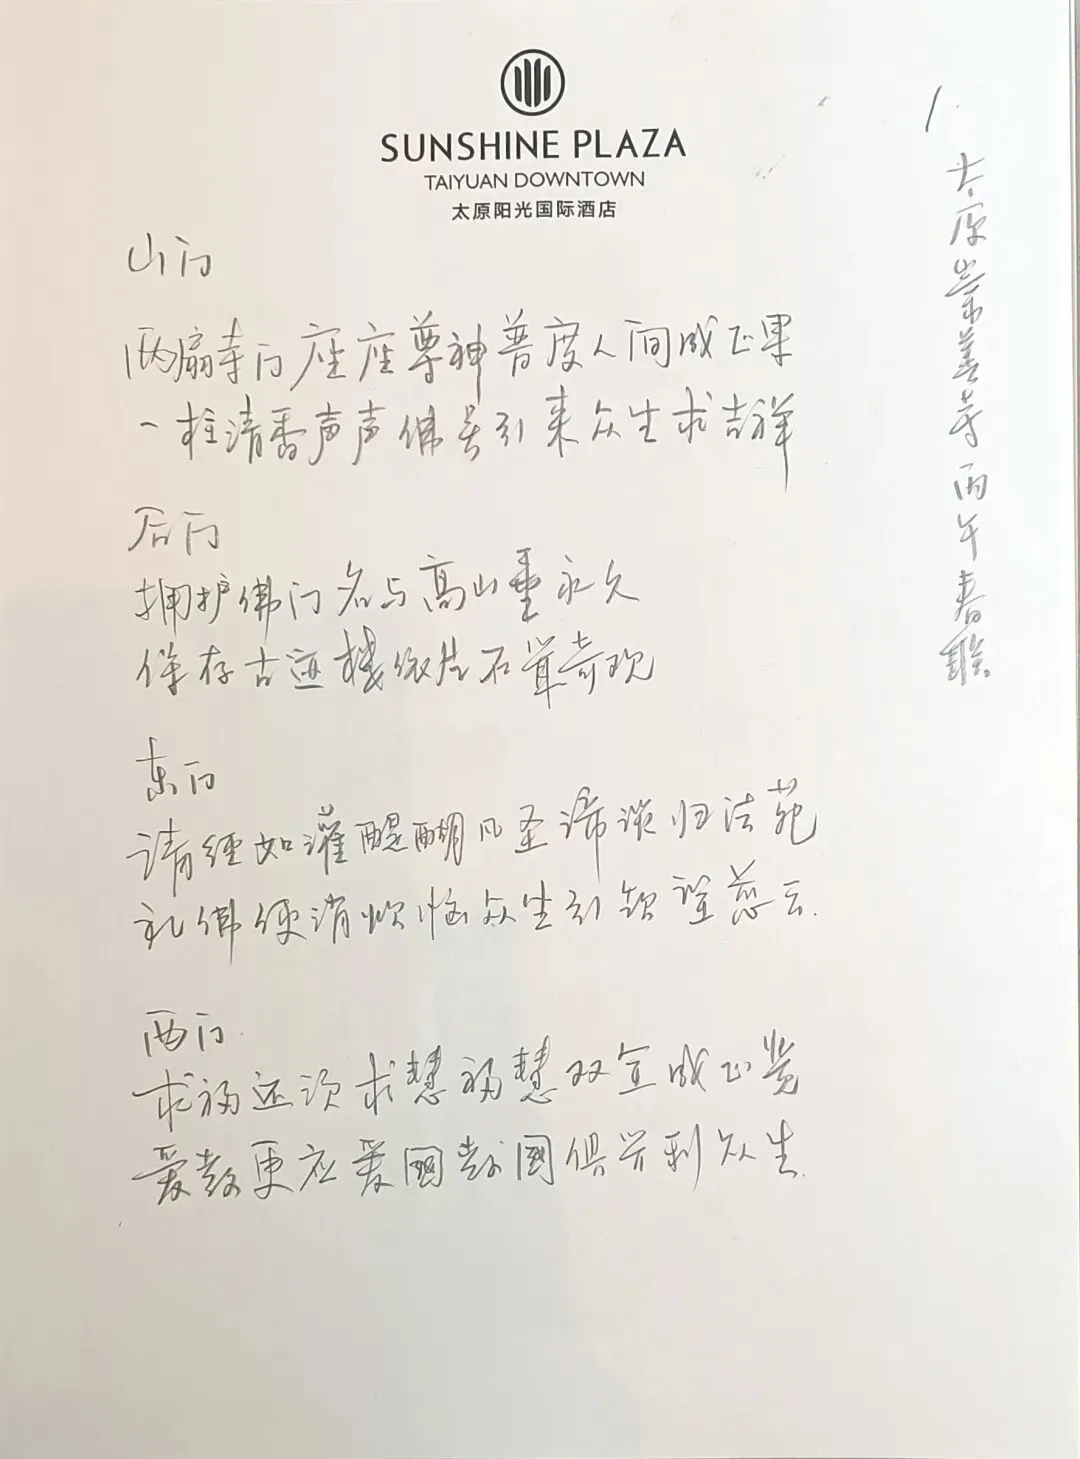 SUNSHINE PLAZA
TAIYUAN DOWNTOWN
太原阳光国际酒店
1.
太原崇善寺丙午春联
山门
两扇寺门座座尊神普度人间成正果
一柱清香声声佛号引来众生求吉祥
后门
拥护佛门名与高山垂永久
保存古迹残片石耸奇观
东门
请经如灌醍醐凡圣谛谈归法苑
礼佛便消烦恼众生引领望慈云
西门
求福还须求慧福慧双宜成正觉
爱教更应爱国教国俱兴利众生